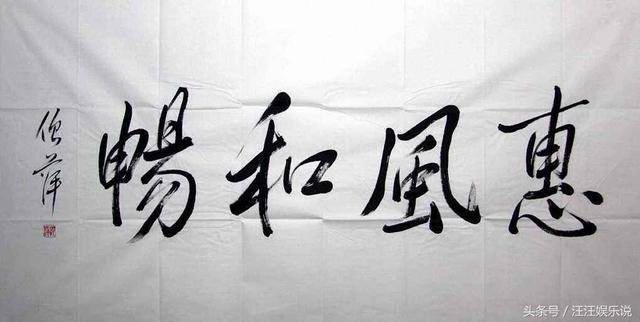 惠風和暢
倪萍
头条号／汪汪娱乐说